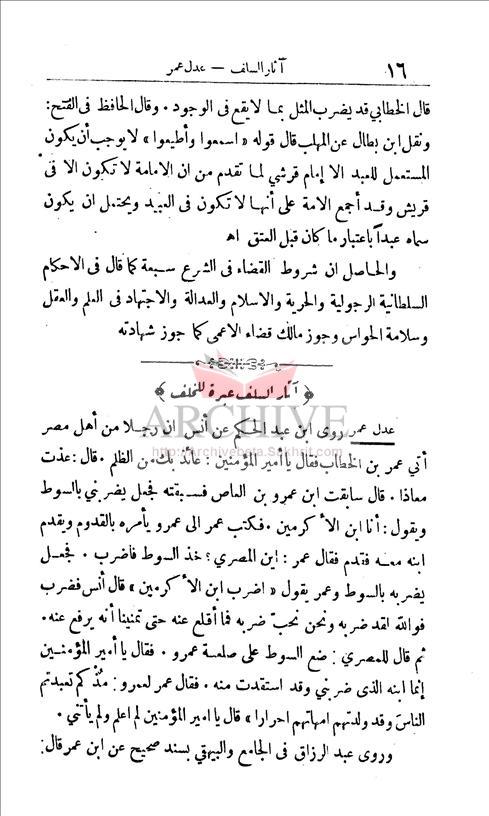 ١٦ آثار السلف — عدل عمر
قال الخطابي قد يضرب المثل بما لا يقع فى الوجود . وقال الحافظ فى الفتح:
ونقل ابن بطال عن المهلب قال قوله « اسمعوا وأطيعوا » لا يوجب أن يكون
المستعمل للعبد الا إمام قرشي لما تقدم من ان الامامة لا تكون الا فى
قريش وقد أجمع الامة على أنها لا تكون فى العبيد ويحتمل ان يكون
سماه عبداً باعتبار ما كان قبل العتق اه
والحاصل ان شروط القضاء فى الشرع سبعة كما قال فى الاحكام
السلطانية الرجولية والحرية والاسلام والعدالة والاجتهاد فى العلم والعقل
وسلامة الحواس وجوز مالك قضاء الاعمى كما جوز شهادته
﴿ آثار السلف عبرة للخلف ﴾
ARCHIVE
http://Archivebeta.Sakhrit.com
عدل عمر روى ابن عبد الحكم عن أنس ان رجلا من أهل مصر
أتي عمر بن الخطاب فقال يا أمير المؤمنين : عائذ بك من الظلم . قال : عذت
معاذا . قال سابقت ابن عمرو بن العاص فسبقته فجعل يضربني بالسوط
ويقول : أنا ابن الأكرمين . فكتب عمر الى عمرو يأمره بالقدوم ويقدم
ابنه معه فقدم فقال عمر : اين المصري ؟ خذ السوط فاضرب . فجعل
يضربه بالسوط وعمر يقول « اضرب ابن الأكرمين » قال أنس فضرب
فوالله لقد ضربه ونحن نحبّ ضربه فما أقلع عنه حتى تمنينا أنه يرفع عنه.
ثم قال للمصري : ضع السوط على صلعة عمرو . فقال يا أمير المؤمنين
إنما ابنه الذى ضربني وقد استقدت منه . فقال عمر لعمرو : مُذْ كم تعبدتم
الناسَ وقد ولدتهم امهاتهم احرارا » قال يا امير المؤمنين لم اعلم ولم يأتني .
وروى عبد الرزاق فى الجامع والبيهقي بسند صحيح عن ابن عمر قال: